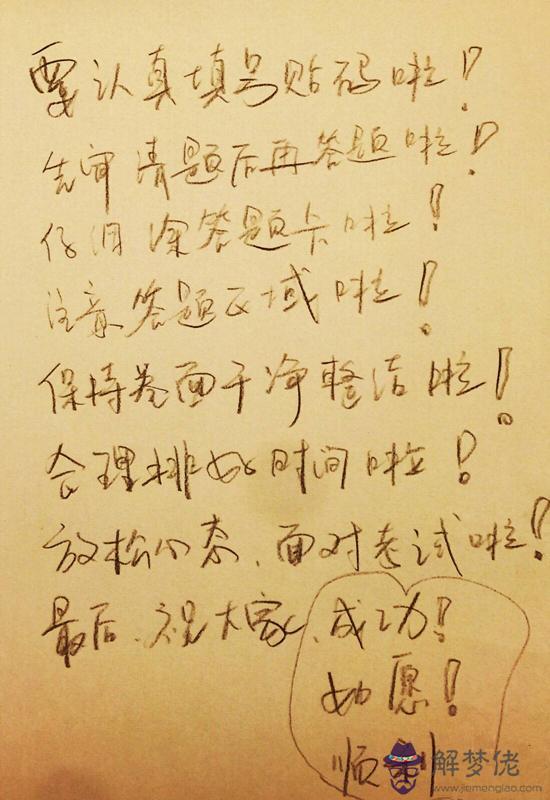 要认真填号贴码啦！
先审清题后再答题啦！
仔细涂答题卡啦！
注意答题区域啦！
保持卷面干净整洁啦！
合理排好时间啦！
放松心态、面对考试啦！
最后、祝大家、成功！
如愿！
顺利
解梦佬
www.jiemenglao.com